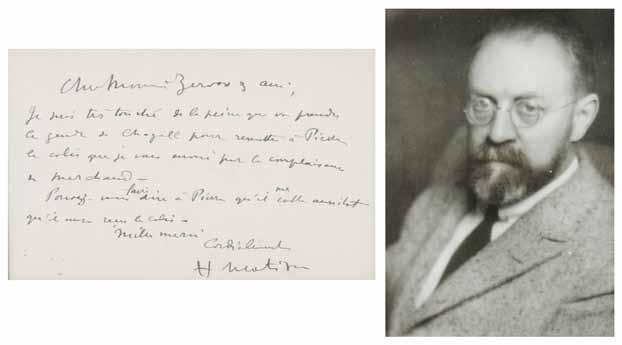 Cher Monsieur Zervos & ami,
Je suis très touché de la peine que vous prendre
le gendre de Chagall pour remettre à Pierre
le colis que je vous envoie par la complaisance
de marchand –
Pouvez-vous faire dire à Pierre qu'il me câble aussitôt
qu'il aura reçu le colis –
Mille merci
Cordialement
H Matisse